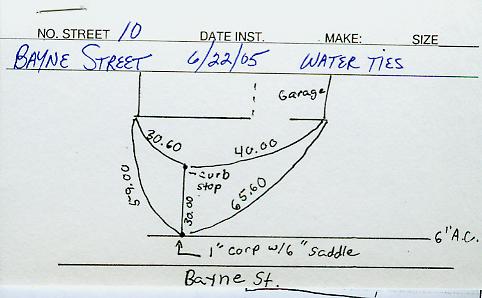 NO. STREET 10 DATE INST. MAKE: SIZE
BAYNE STREET 6/22/05 WATER TIES
Garage
30.60 40.00
curb
stop
59.00 30.00 65.60
6" A.C.
1" corp w/6" saddle
Bayne St.